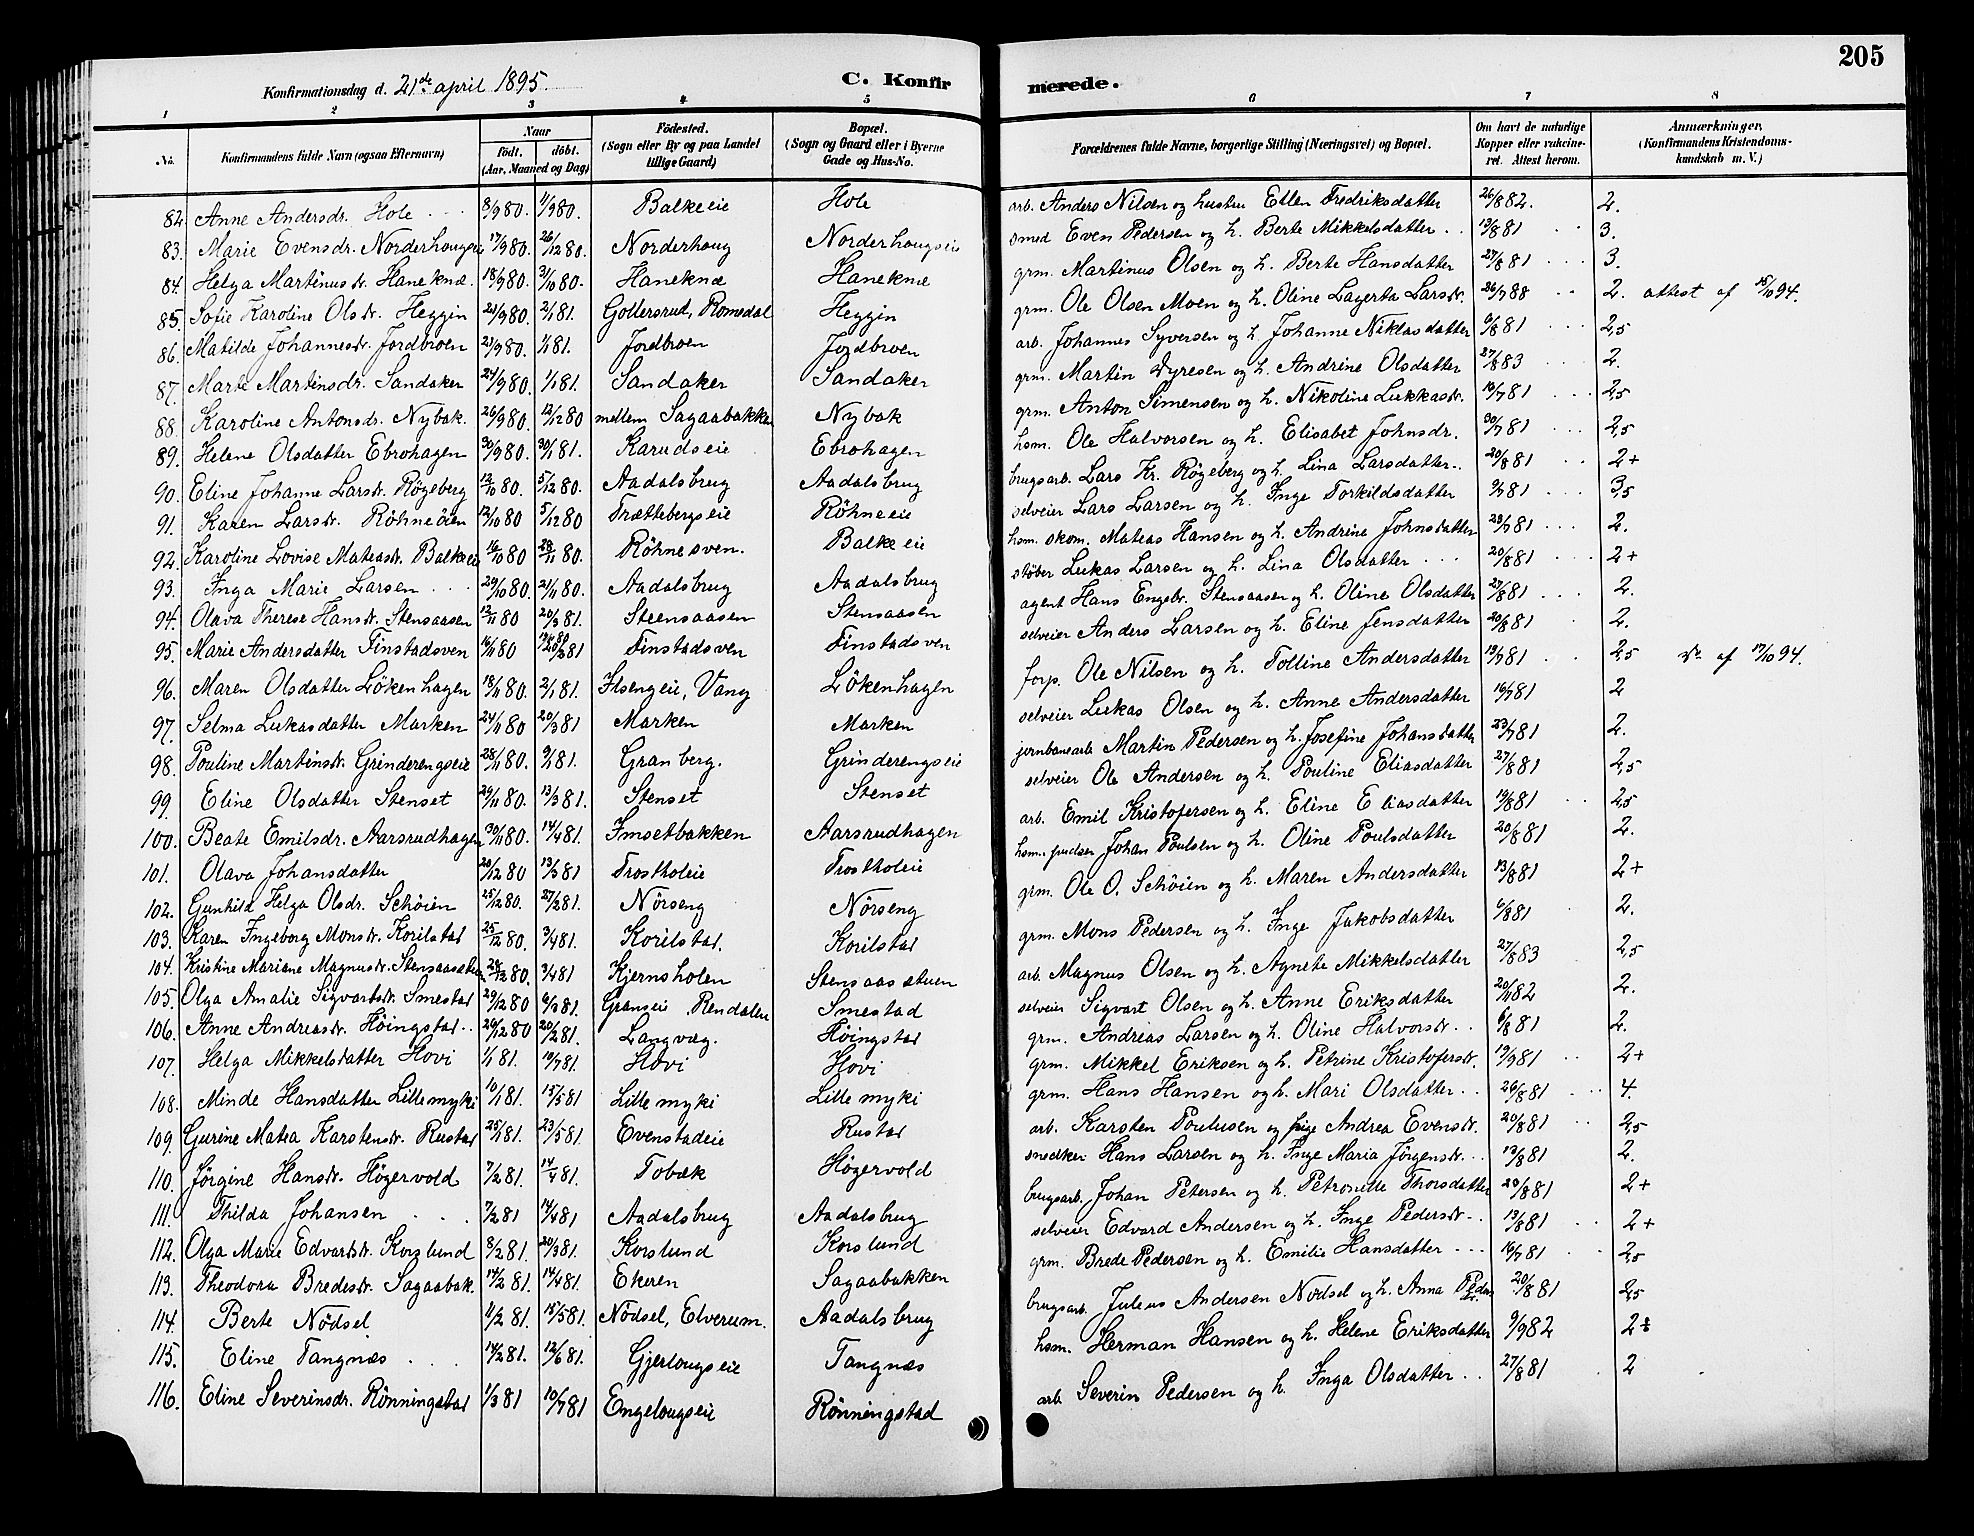 205
Konfirmationsdag d. 21de april 1895. C. Konfirmerede.
1 2 3 4 5 6 7 8
No. Konfirmandens fulde Navn (ogsaa Efternavn) Naar født. døbt. (Aar, Maaned og Dag) Fødested. (Sogn eller By og paa Landet tillige Gaard) Bopæl. (Sogn og Gaard eller i Byerne Gade og Hus-No. Forældrenes fulde Navne, borgerlige Stilling (Næringsvei) og Bopæl. Om havt de naturlige Kopper eller vaccineret. Attest herom. Anmærkninger, (Konfirmandens Kristendomskundskab m. V.)
82. Anne Andersdr. Hole 8/9 80. 1/9 80. Balkeeie Hole arb. Anders Nilsen og hustru Ellen Fredriksdatter 26/8 82. 2.
83. Marie Evensdr. Norderhougseie 17/9 80. 26/12 80. Norderhoug Norderhougseie smed Even Pedersen og h. Berte Mikkelsdatter 13/8 81 3.
84. Helga Martinusdr. Haneknæ 18/9 80. 31/10 80. Haneknæ Haneknæ grm. Martinus Olsen og h. Berte Hansdatter 27/8 81 3.
85. Sofie Karoline Olsdr. Heggin 21/9 80. 2/1 81. Gollersrud, Romedal Heggin grm. Ole Olsen Moen og h. Oline Lagerta Larsdr. 26/7 88 2. attest af 15/10 94.
86. Matilde Johannesdr. Jordbroen 21/9 80. 1/1 81. Jordbroen Jordbroen arb. Johannes Syversen og h. Johanne Niklasdatter 6/8 81 2,5
87. Marte Martinsdr. Sandaker 24/9 80. 1/1 81. Sandaker Sandaker grm. Martin Dyresen og h. Andrine Olsdatter 27/8 83 2.
88. Karoline Antonsdr. Nybak. 26/9 80. 12/12 80 mellem Sagaabakken Nybak grm. Anton Simensen og h. Nikoline Lukkasdr. 16/7 81 2,5
89. Helene Olsdatter Ebrohagen 30/9 80. 30/1 81. Karudseie Ebrohagen hsm. Ole Halvorsen og h. Elisabet Johnsdr. 30/7 81 2,5
90. Eline Johanne Larsdr. Røgeberg 12/10 80. 5/12 80. Aadalsbrug Aadalsbrug brugsarb. Lars Kr. Røgeberg og h. Lina Larsdatter 20/8 81 2+
91. Karen Larsdr. Röhneöien 12/10 80 5/12 80 Trættebergseie Röhneeie selveier Lars Larsen og h. Inge Torkildsdatter 9/7 81 3,5
92. Karoline Lovise Mateasdr. Balkeeie 16/10 80 28/11 80. Röhnesven. Balkeeie hsm. skom. Mateas Hansen og h. Andrine Johnsdatter 23/7 81 2.
93. Inga Marie Larsen 29/10 80. 21/11 80. Aadalsbrug Aadalsbrug støber Lukas Larsen og h. Lina Olsdatter 20/8 81 2+
94. Olava Therese Hansdr. Stensaasen 12/11 80 20/3 81. Steensaasen Stensaasen agent Hans Engebr. Stensaasen og h. Oline Olsdatter 27/8 81 2.
95. Marie Andersdatter Finstadsven 16/11 80 Finstadsven Finstadsven selveier Anders Larsen og h. Eline Jensdatter 20/8 81 2.
96. Maren Olsdatter Lökenhagen 18/11 80. 2/1 81. Ilsengeie, Vang Lökenhagen forp. Ole Nilsen og h. Tolline Andersdatter 13/7 81 2,5 do. af 17/10 94.
97. Selma Lukasdatter Marken 24/11 80 20/3 81 Marken Marken selveier Lukas Olsen og h. Anne Andersdatter 16/7 81 2
98. Pouline Martinsdr. Grinderengseie 28/11 80. 9/1 81. Granberg. Grinderengseie jernbanearb. Martin Pedersen og h. Josefine Johansdatter 23/7 81 2.
99. Eline Olsdatter Stenset 29/11 80. 13/3 81. Stenset Stenset selveier Ole Andersen og h. Pouline Eliasdatter 27/8 81 2,5
100. Beate Emilsdr. Aarsrudhagen 30/11 80. 14/4 81. Imsetbakken Aarsrudhagen arb. Emil Kristofersen og h. Eline Eliasdatter 19/8 81 2,5
101. Olava Johansdatter 20/12 80 13/3 81 Trostholeie Trostholeie hsm. Johan Poulsen og h. Oline Poulsdatter 20/8 81 2.
102. Gunhild Helga Olsdr. Schöien 25/12 80. 27/2 81. Nörseng Nörseng grm. Ole O. Schöien og h. Maren Andersdatter 13/8 81 2+
103. Karen Ingeborg Monsdr. Korilstad 25/12 80. 3/4 81. Korilstad. Korilstad grm. Mons Pedersen og h. Inge Jakobsdatter 6/8 81 2.
104. Kristine Mariane Magnusdr. Stensaasstuen 28/12 80. 3/4 81 Kjernsholen Stensaasstuen arb. Magnus Olsen og h. Agnete Mikkelsdatter 27/8 83 2,5
105. Olga Amalie Sigvartsdr. Smestad 29/12 80 6/3 81. Grangeie Rendalen Smestad selveier Sigvart Olsen og h. Anne Eriksdatter 20/11 82 2.
106. Anne Andreasdr. Höingstad 29/12 80 20/2 81. Langvæg. Höingstad grm. Andreas Larsen og h. Oline Halvorsdr. 6/8 81 2.
107. Helga Mikkelsdatter Hovi 1/1 81. 10/7 81. Hovi Hovi grm. Mikkel Eriksen og h. Petrine Kristofersdr. 19/7 81 2+
108. Minde Hansdatter Lillemyki 10/1 81. 15/5 81 Lillemyki Lillemyki grm. Hans Hansen og h. Mari Olsdatter 26/8 81 4.
109. Gurine Matea Karstensdr. Rustad 25/1 81. 23/5 81 Evenstadeie Rustad arb. Karsten Poulusen og pige Andrea Evensdr. 20/8 81 2,5
110. Jørgine Hansdr. Högervold 7/2 81. 14/4 81. Tobæk Högervold snedker Hans Larsen og h. Inge Maria Jørgensdr. 13/8 81 2.
111. Thilda Johansen 7/2 81 14/4 81 Aadalsbrug Aadalsbrug brugsarb. Johan Petersen og h. Petronille Thorsdatter 20/8 81 2+
112. Olga Marie Edvartsdr. Korslund 8/2 81. 20/3 81. Korslund Korslund selveier Edvard Andersen og h. Inge Pedersdr. 13/8 81 2+
113. Theodora Bredesdr. Sagaabak. 14/2 81. 14/4 81. Ekeren Sagaabakken grm. Brede Pedersen og h. Emilie Hansdatter 16/7 81 2,5
114. Berte Nödsel 11/2 81. 15/5 81. Nödsel, Elverum. Aadalsbrug brugsarb. Julius Andersen Nödsel og h. Anna Pedersdr. 20/8 81 2,5
115. Eline Tangnæs 14/2 81. 12/6 81. Gjerlougseie Tangnæs hsm. Herman Hansen og h. Helene Eriksdatter 9/9 82 2
116. Eline Severinsdr. Rönningstad 1/3 81 10/7 81 Engelougseie Rönningstad arb. Severin Pedersen og h. Inga Olsdatter 27/8 81 2